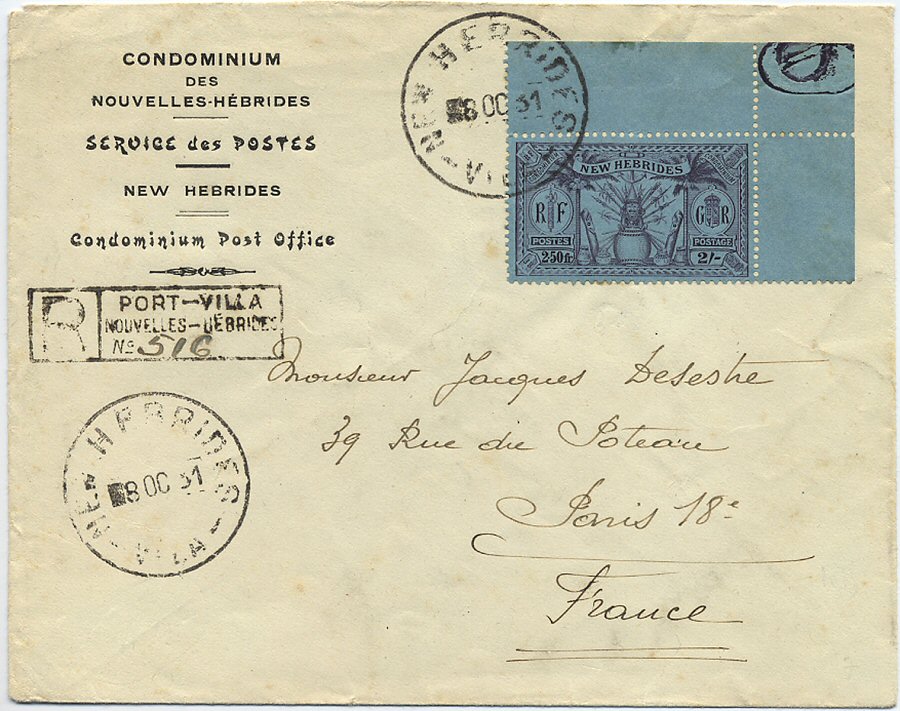 CONDOMINIUM
DES
NOUVELLES-HÉBRIDES
SERVICE des POSTES
NEW HEBRIDES
Condominium Post Office
NEW HEBRIDES
8 OC 31
VILA
NEW HEBRIDES
R F
G R
POSTES
POSTAGE
2.50fr.
2/-
R
PORT-VILLA
NOUVELLES-HÉBRIDES
No 516
Monsieur Jacques Desestre
39 Rue du Poteau
Paris 18e
France
NEW HEBRIDES
8 OC 31
VILA